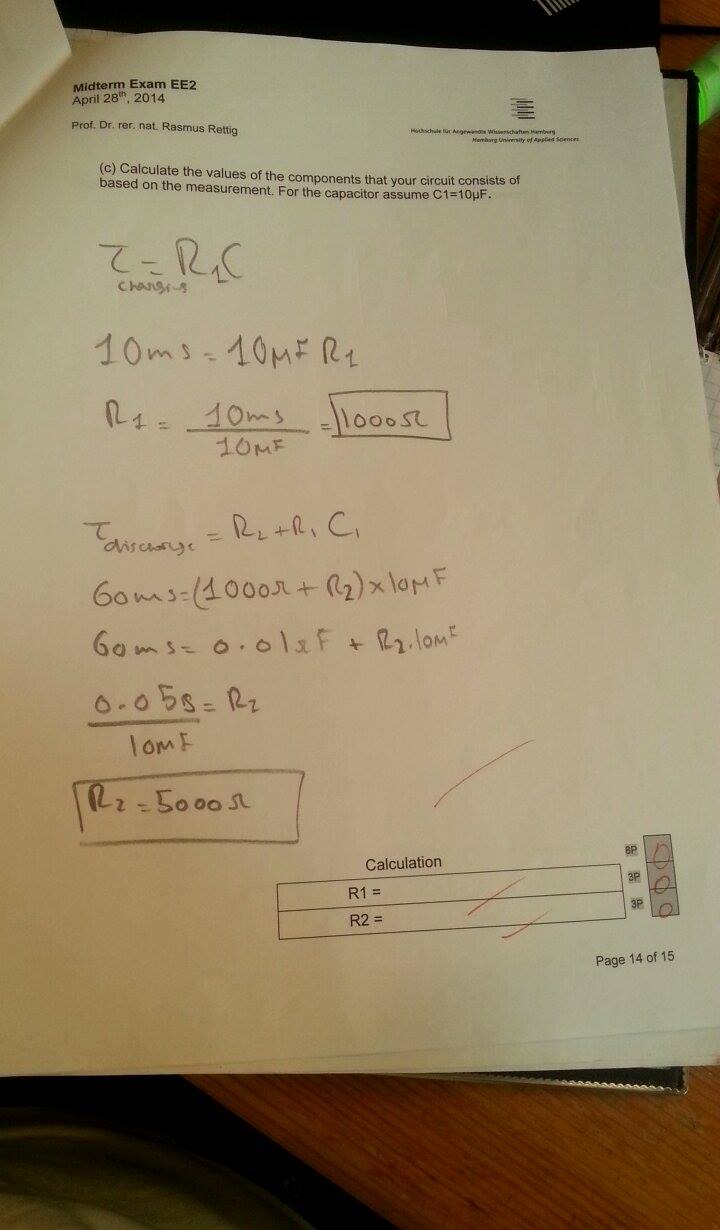 Midterm Exam EE2
April 28th, 2014
Prof. Dr. rer. nat. Rasmus Rettig
Hochschule für Angewandte Wissenschaften Hamburg
Hamburg University of Applied Sciences
(c) Calculate the values of the components that your circuit consists of
based on the measurement. For the capacitor assume C1=10µF.
τ = R1C
charging
10ms = 10µF R1
R1 = 10ms / 10µF = 1000Ω
τdischarge = R2 + R1 C1
60ms = (1000Ω + R2) x 10µF
60ms = 0.01ΩF + R2.10µF
0.05s / 10µF = R2
R2 = 5000Ω
Calculation
8P 0
R1 = 3P 0
R2 = 3P 0
Page 14 of 15